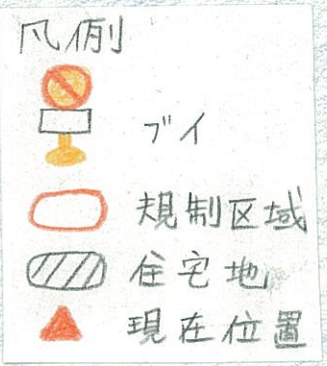 凡例
ブイ
規制区域
住宅地
現在位置